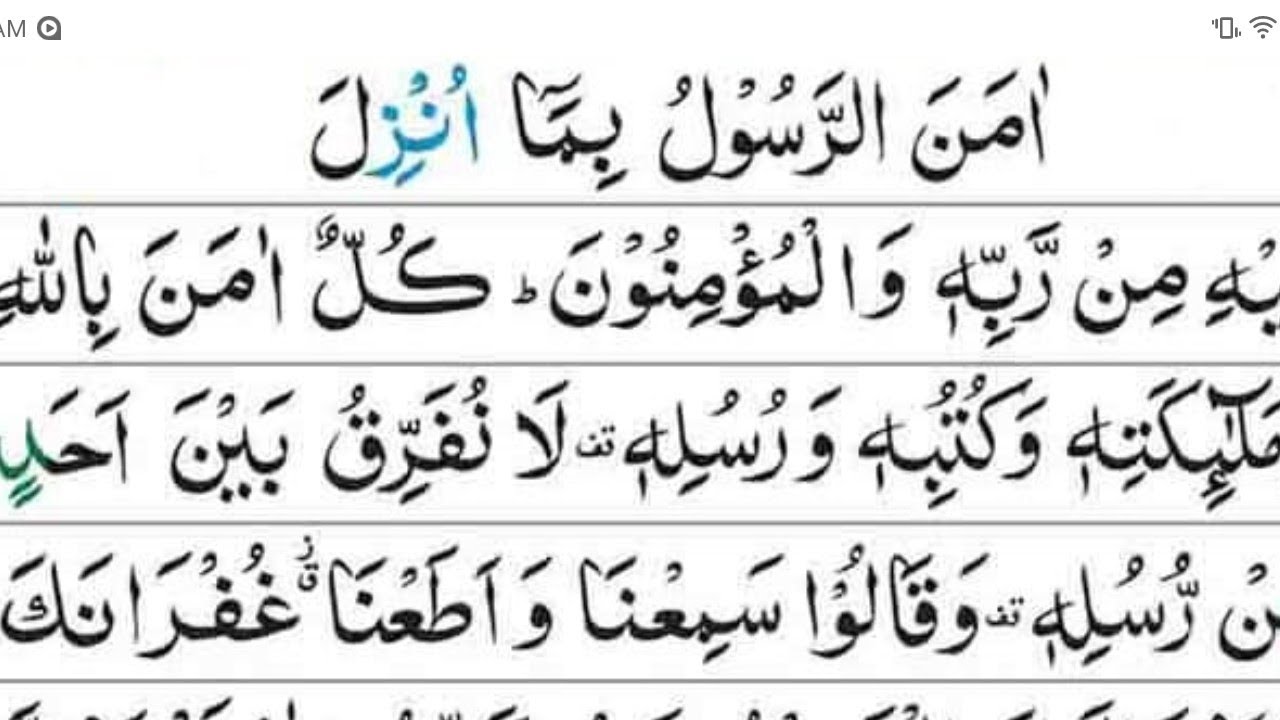 AM
اٰمَنَ الرَّسُوْلُ بِمَاۤ اُنْزِلَ
یْهِ مِنْ رَّبِّهٖ وَ الْمُؤْمِنُوْنَ ؕ كُلٌّ اٰمَنَ بِاللّٰهِ
مَلٰٓىِٕكَتِهٖ وَ كُتُبِهٖ وَ رُسُلِهٖ تف لَا نُفَرِّقُ بَیْنَ اَحَدٍ
نْ رُّسُلِهٖ تف وَ قَالُوْا سَمِعْنَا وَ اَطَعْنَا ق ز غُفْرَانَكَ